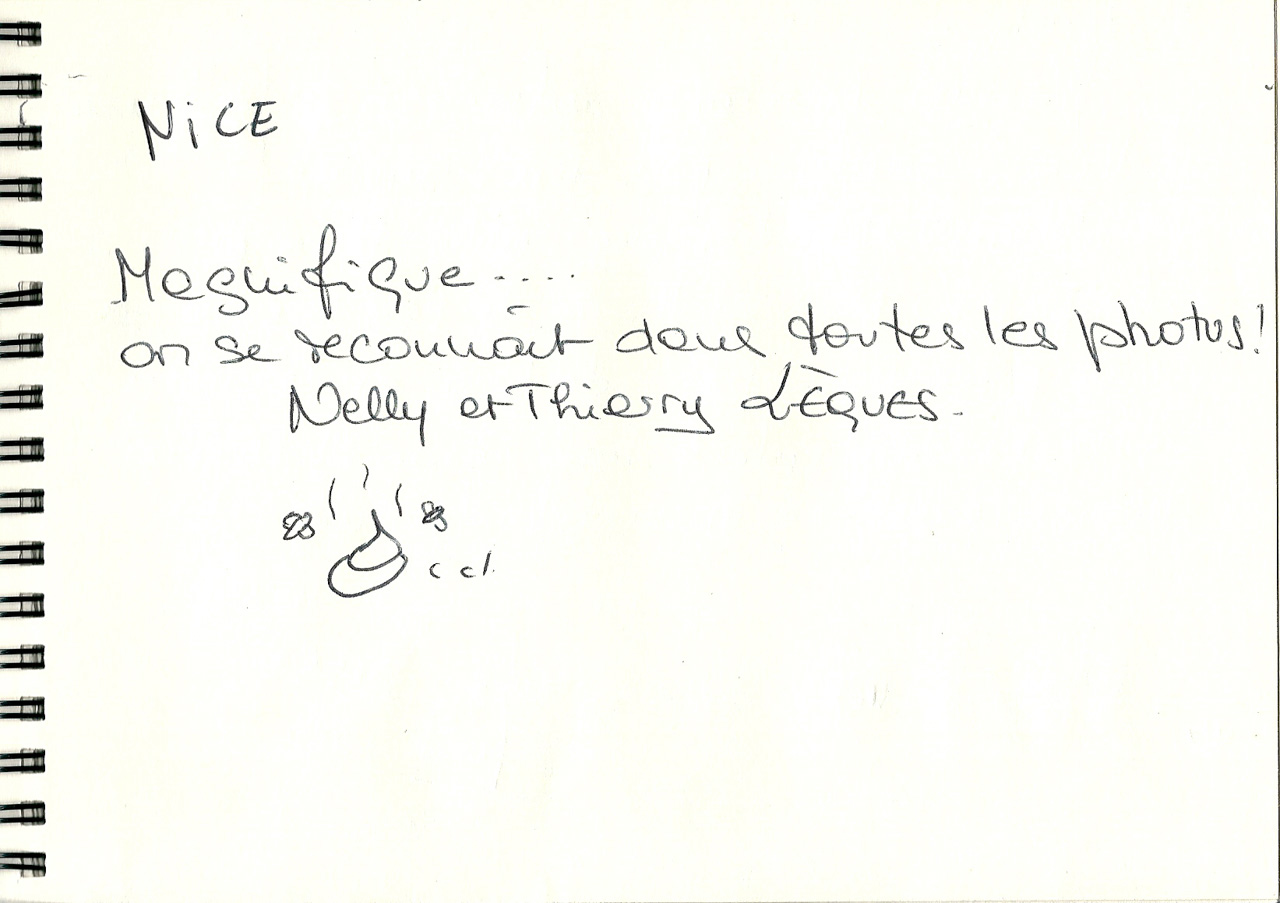 NiCE
Magnifique.....
on se reconnait dans toutes les photos!
Nelly et Thierry LÈQUES.